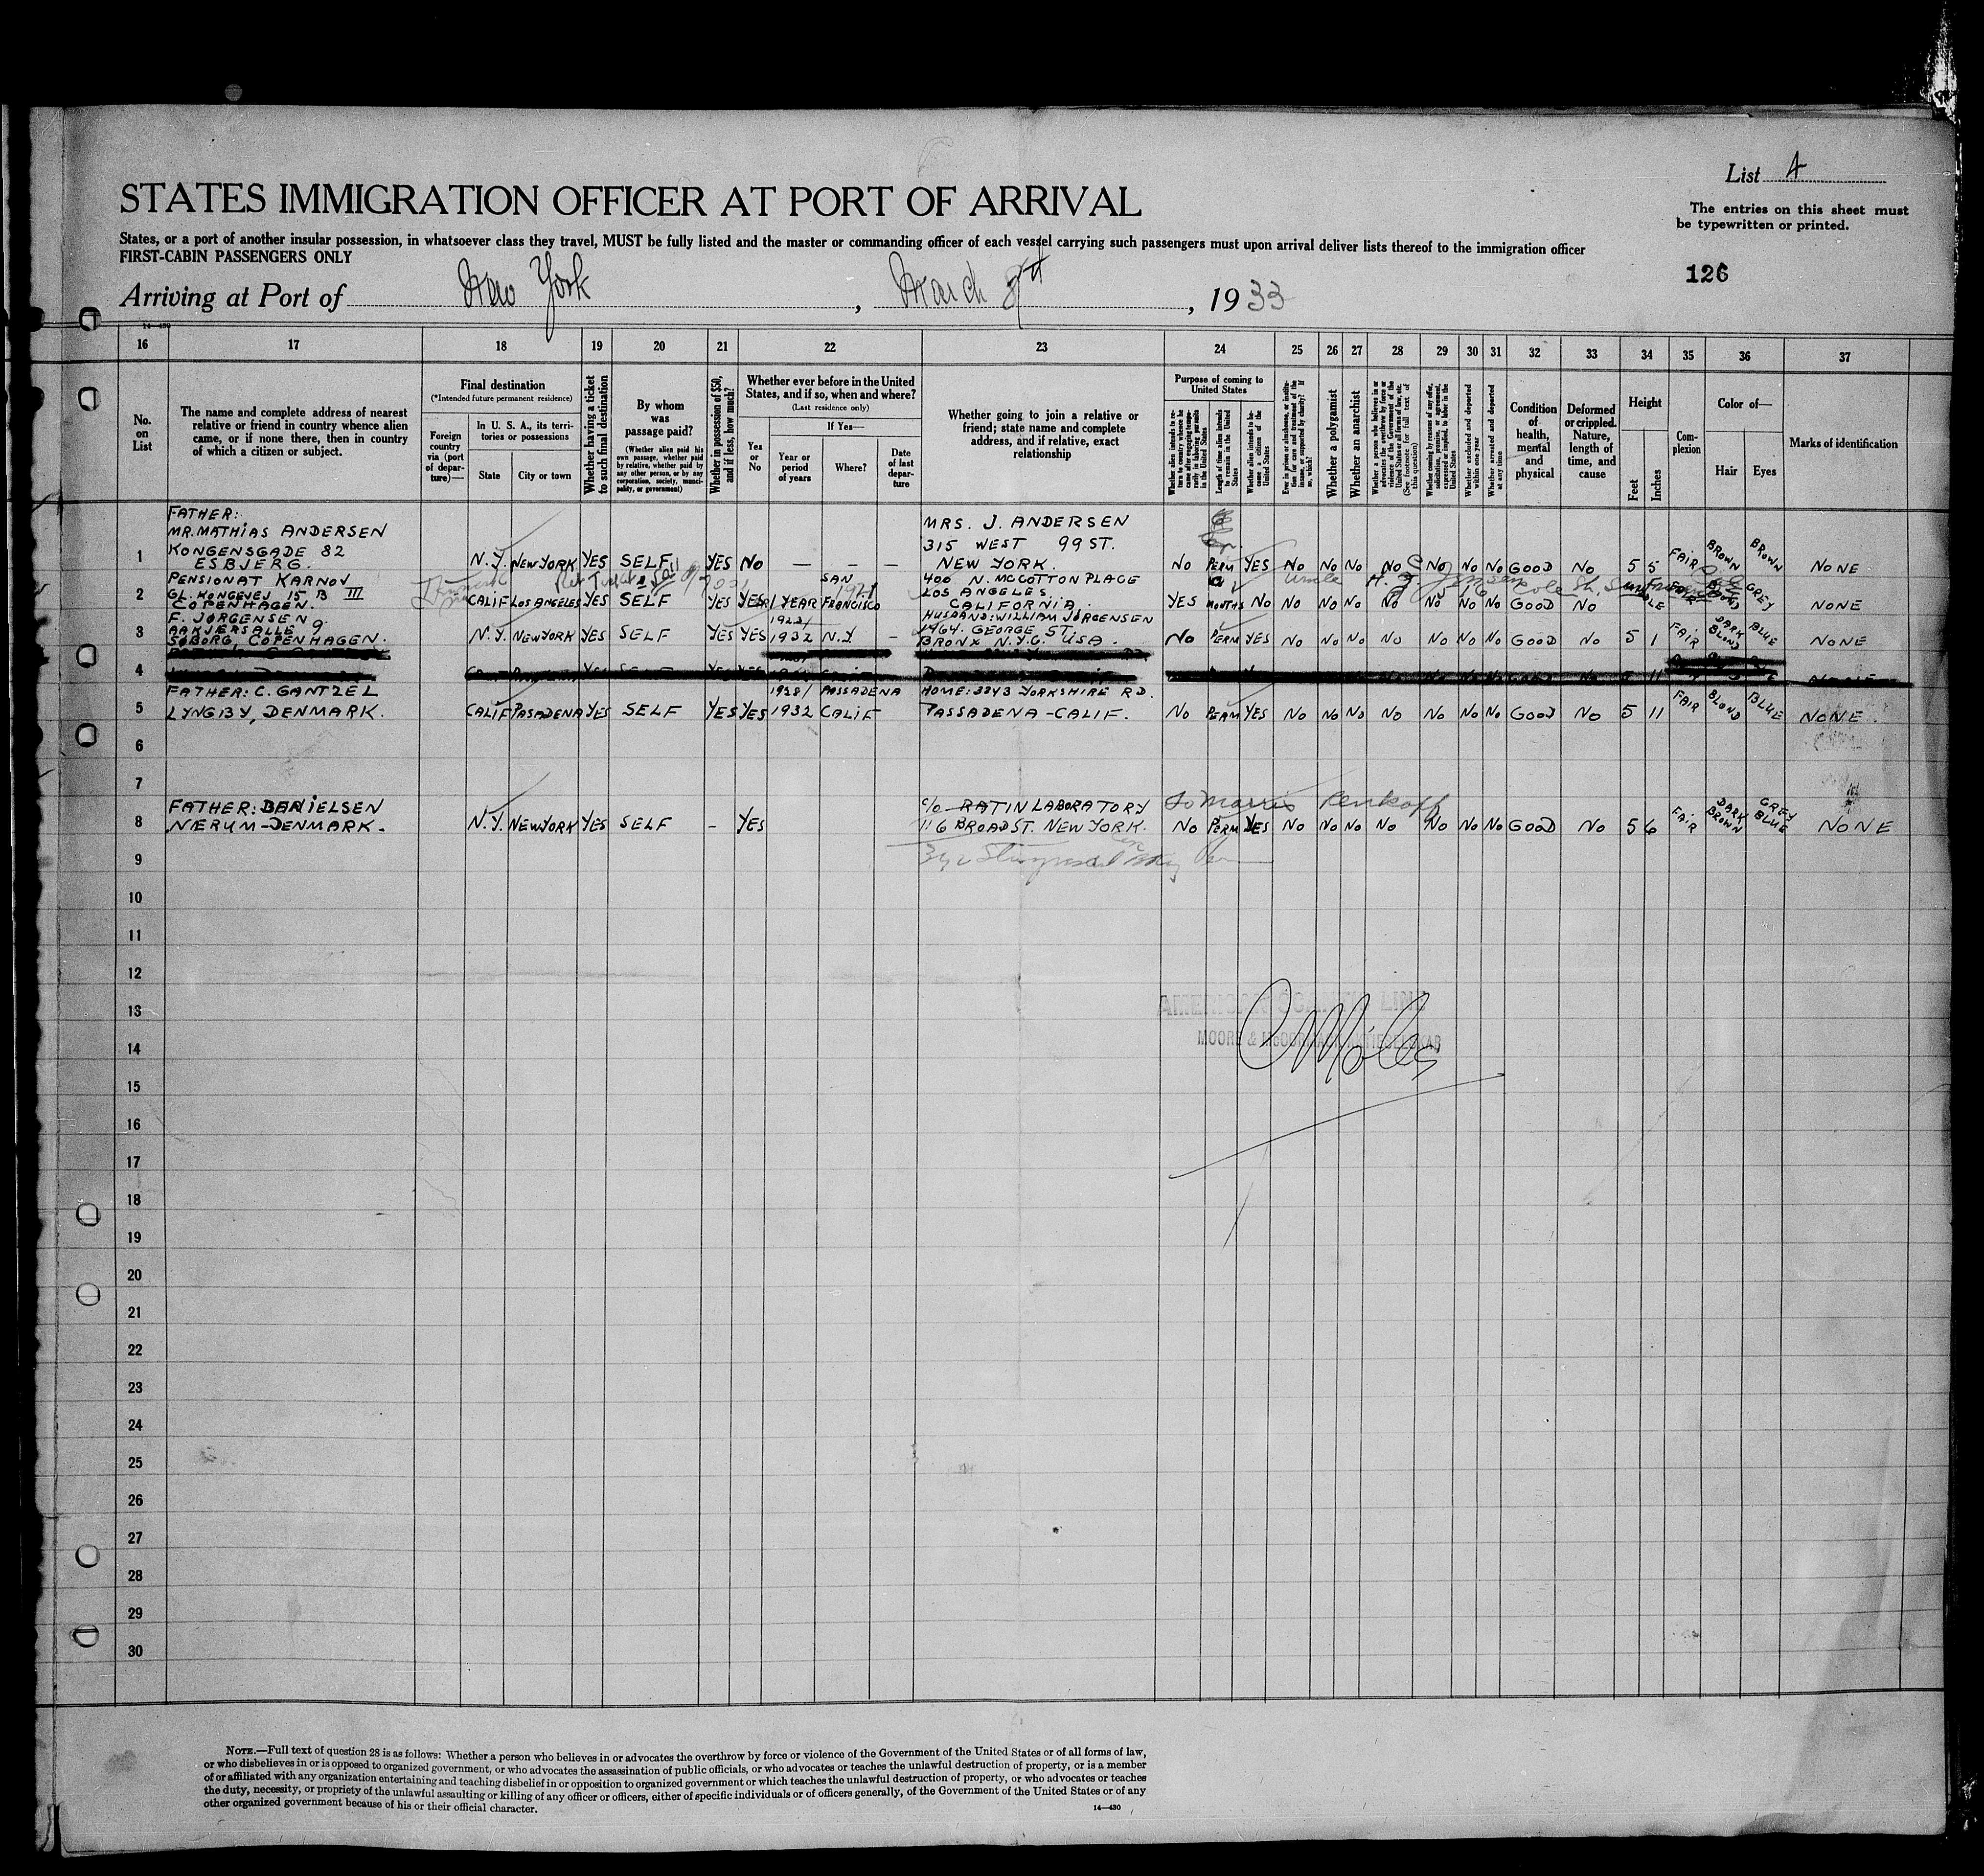 List 4
STATES IMMIGRATION OFFICER AT PORT OF ARRIVAL
The entries on this sheet must
be typewritten or printed.
States, or a port of another insular possession, in whatsoever class they travel, MUST be fully listed and the master or commanding officer of each vessel carrying such passengers must upon arrival deliver lists thereof to the immigration officer
FIRST-CABIN PASSENGERS ONLY
126
Arriving at Port of New York, March 8th, 1933
14—430
16 17 18 19 20 21 22 23 24 25 26 27 28 29 30 31 32 33 34 35 36 37
No. on List
The name and complete address of nearest relative or friend in country whence alien came, or if none there, then in country of which a citizen or subject.
Final destination
(*Intended future permanent residence)
Foreign country via (port of departure)—
In U. S. A., its territories or possessions
State
City or town
Whether having a ticket to such final destination
By whom was passage paid?
(Whether alien paid his own passage, whether paid by relative, whether paid by any other person, or by any corporation, society, municipality, or government)
Whether in possession of $50, and if less, how much?
Whether ever before in the United States, and if so, when and where?
(Last residence only)
Yes or No
If Yes—
Year or period of years
Where?
Date of last departure
Whether going to join a relative or friend; state name and complete address, and if relative, exact relationship
Purpose of coming to United States
Length of time alien intends to remain in the United States
Whether alien intends to become a citizen of the United States
Whether a polygamist
Whether an anarchist
(See footnote for full text of this question)
Whether excluded and deported within one year
Whether arrested and deported at any time
Condition of health, mental and physical
Deformed or crippled. Nature, length of time, and cause
Height
Feet
Inches
Complexion
Color of—
Hair
Eyes
Marks of identification
FATHER:
MR. MATHIAS ANDERSEN
KONGENSGADE 82
ESBJERG.
1 N.Y. NEW YORK YES SELF YES NO — — —
MRS. J. ANDERSEN
315 WEST 99 ST.
NEW YORK.
NO PERM YES NO NO NO NO NO NO NO GOOD NO 5 5 FAIR BROWN BROWN NONE
PENSIONAT KARNOV
GL. KONGEVEJ 15 B III
COPENHAGEN.
2 CALIF LOS ANGELES YES SELF YES YES 1 YEAR SAN FRANCISCO
400 N. MCCOTTON PLACE
LOS ANGELES.
CALIFORNIA.
YES MONTHS NO NO NO NO NO NO NO NO GOOD NO GREY NONE
Uncle
F. JØRGENSEN.
AAKJÆRSALLE 9
SØBORG, COPENHAGEN.
3 N.Y. NEW YORK YES SELF YES YES 1932 N.Y. —
HUSBAND: WILLIAM JØRGENSEN
1464. GEORGE ST.
BRONX N.Y.C. USA.
NO PERM YES NO NO NO NO NO NO NO GOOD NO 5 1 FAIR DARK BLOND BLUE NONE
4
FATHER: C. GANTZEL
LYNGBY, DENMARK.
5 CALIF PASADENA YES SELF YES YES 1928/1932 PASSADENA CALIF
HOME: 3343 YORKSHIRE RD.
PASSADENA-CALIF.
NO PERM YES NO NO NO NO NO NO NO GOOD NO 5 11 FAIR BLOND BLUE NONE.
6
7
FATHER: DANIELSEN
NÆRUM-DENMARK.
8 N.Y. NEW YORK YES SELF - YES
C/O RATIN LABORATORY
116 BROAD ST. NEW YORK.
to Morris
NO PERM YES NO NO NO NO NO NO NO GOOD NO 5 6 FAIR DARK BROWN GREY BLUE NONE
9
10
11
12
13
AMERICAN SCANTIC LINE
MOORE & McCORMACK
14
15
16
17
18
19
20
21
22
23
24
25
26
27
28
29
30
NOTE.—Full text of question 28 is as follows: Whether a person who believes in or advocates the overthrow by force or violence of the Government of the United States or of all forms of law,
or who disbelieves in or is opposed to organized government, or who advocates the assassination of public officials, or who advocates or teaches the unlawful destruction of property, or is a member
of or affiliated with any organization entertaining and teaching disbelief in or opposition to organized government or which teaches the unlawful destruction of property, or who advocates or teaches
the duty, necessity, or propriety of the unlawful assaulting or killing of any officer or officers, either of specific individuals or of officers generally, of the Government of the United States or of any
other organized government because of his or their official character.
14—430